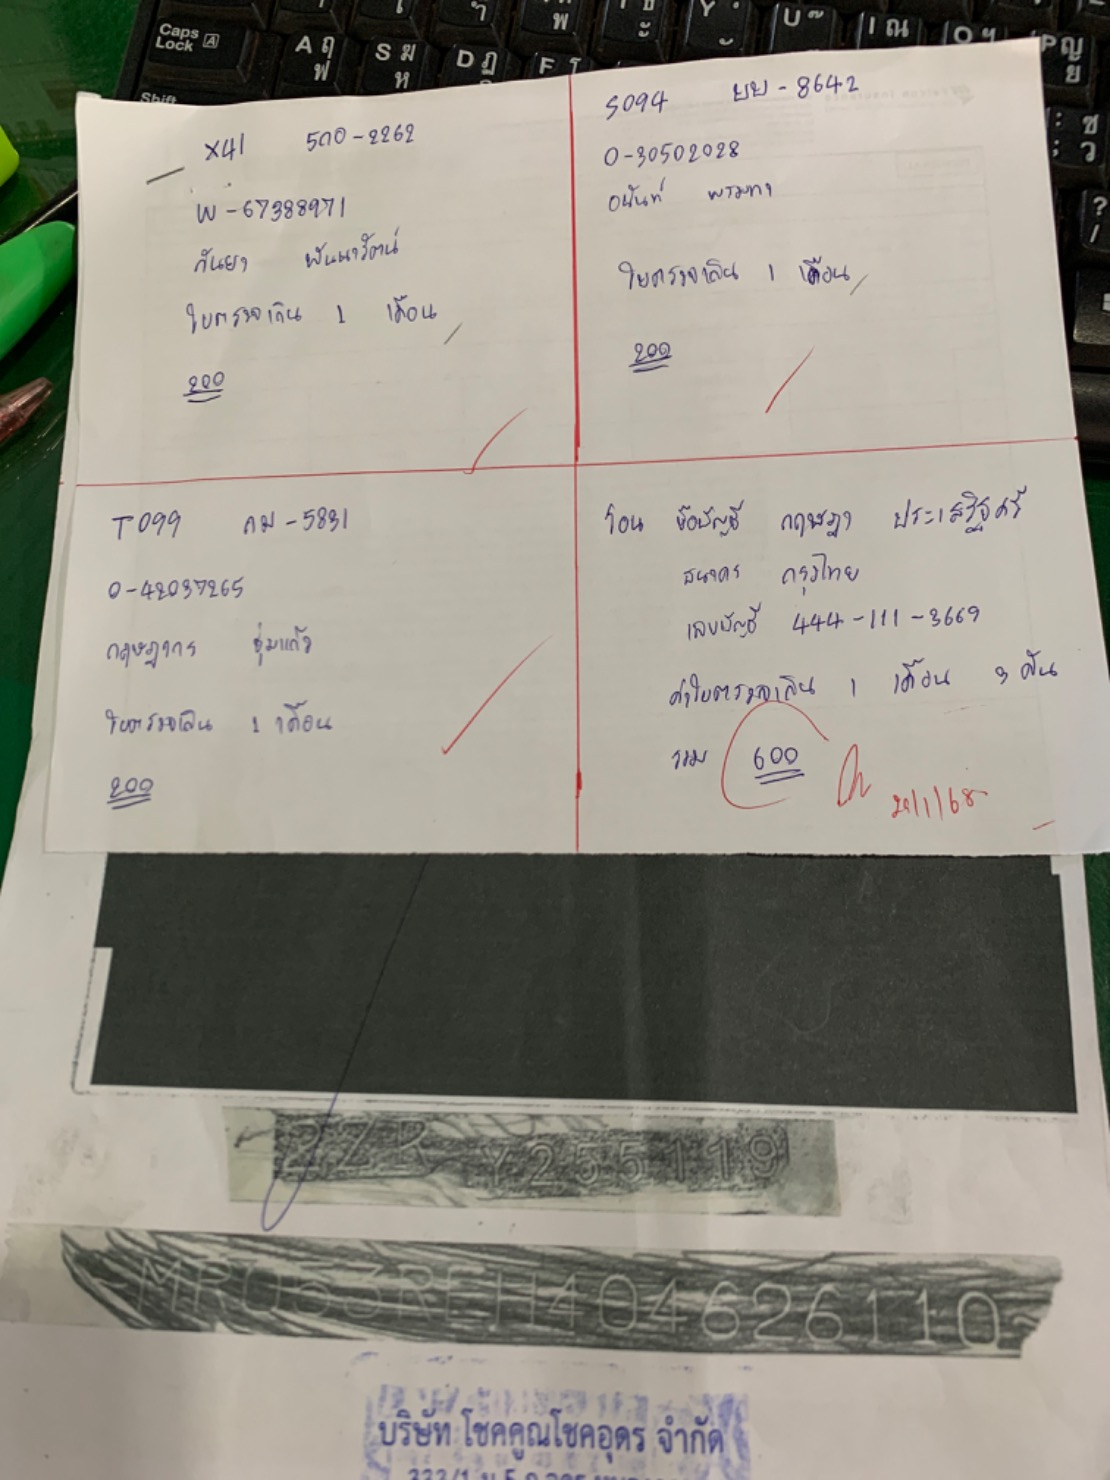 Caps Lock A
Shift
X41 5กอ-2262
W-67388971
กันยา พันนารัตน์
ใบตรวจเงิน 1 เดือน
200
S094 ยบ-8642
0-30502028
อนันท์ พรมทา
ใบตรวจเงิน 1 เดือน
200
T099 กม-5831
0-42037265
กฤษฎากร ชุ่มแก้ว
ใบตรวจเงิน 1 เดือน
200
โอน ชื่อบัญชี กฤษฎา ประเสริฐศรี
ธนาคาร กรุงไทย
เลขบัญชี 444-111-3669
ค่าใบตรวจเงิน 1 เดือน 3 คัน
รวม 600
2ZR Y255119
MR053REH404626110
บริษัท โชคคูณโชคอุดร จำกัด